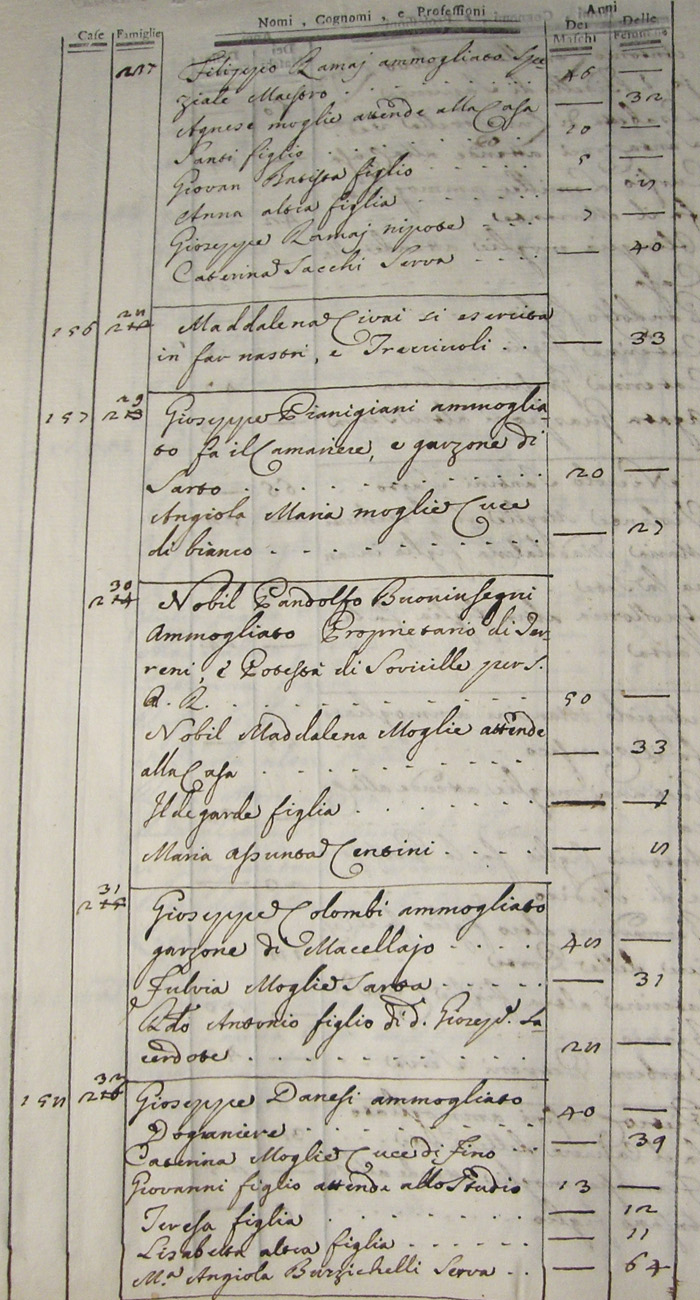 Nomi, Cognomi, e Professioni
Anni
Case Famiglie Dei Maschi Delle Femmine
227 Filippo Ramaj ammogliato Spe
ziale Maestro . . . . 46 —
Agnese moglie attende alla Casa — 32
Santi figlio . . . . 10 —
Giovan Batista figlio . . . . 5 —
Anna altra figlia . . . . —
Giuseppe Ramaj nipote . . . . 7 —
Caterina Sacchi Serva . . . . — 40
156 28 Maddalena Civai si esercita
in far nastri, e Trecciuoli . . — 33
157 29 Gioseppe Pianigiani ammoglia
to fa il Camariere, e garzone di
Sarto . . . . 20 —
Angiola Maria moglie Cuce
di bianco . . . . — 27
30 Nobil Pandolfo Buoninsegni
Ammogliato Proprietario di Ter
reni, è Potestà di Sovicille per S.
A. R. . . . . 50 —
Nobil Maddalena Moglie attende — 33
alla Casa . . . .
Ildegarde figlia . . . . — 1
Maria Assunta Centini . . . . —
31 Gioseppe Colombi ammogliato
garzone di Macellajo . . . . 48 —
Fulvia Moglie Sarta . . . . — 31
Rdo Antonio figlio di d. Giosepe. Sa
cerdote . . . . 28 —
158 32 Gioseppe Danesi ammogliato
Doganiere . . . . 40 —
Caterina Moglie Cuce di fino . . — 39
Giovanni figlio attende allo Studio 13 —
Teresa figlia . . . . — 12
Lisabetta altra figlia . . . . — 11
Ma. Angiola Burzichelli Serva . . — 64